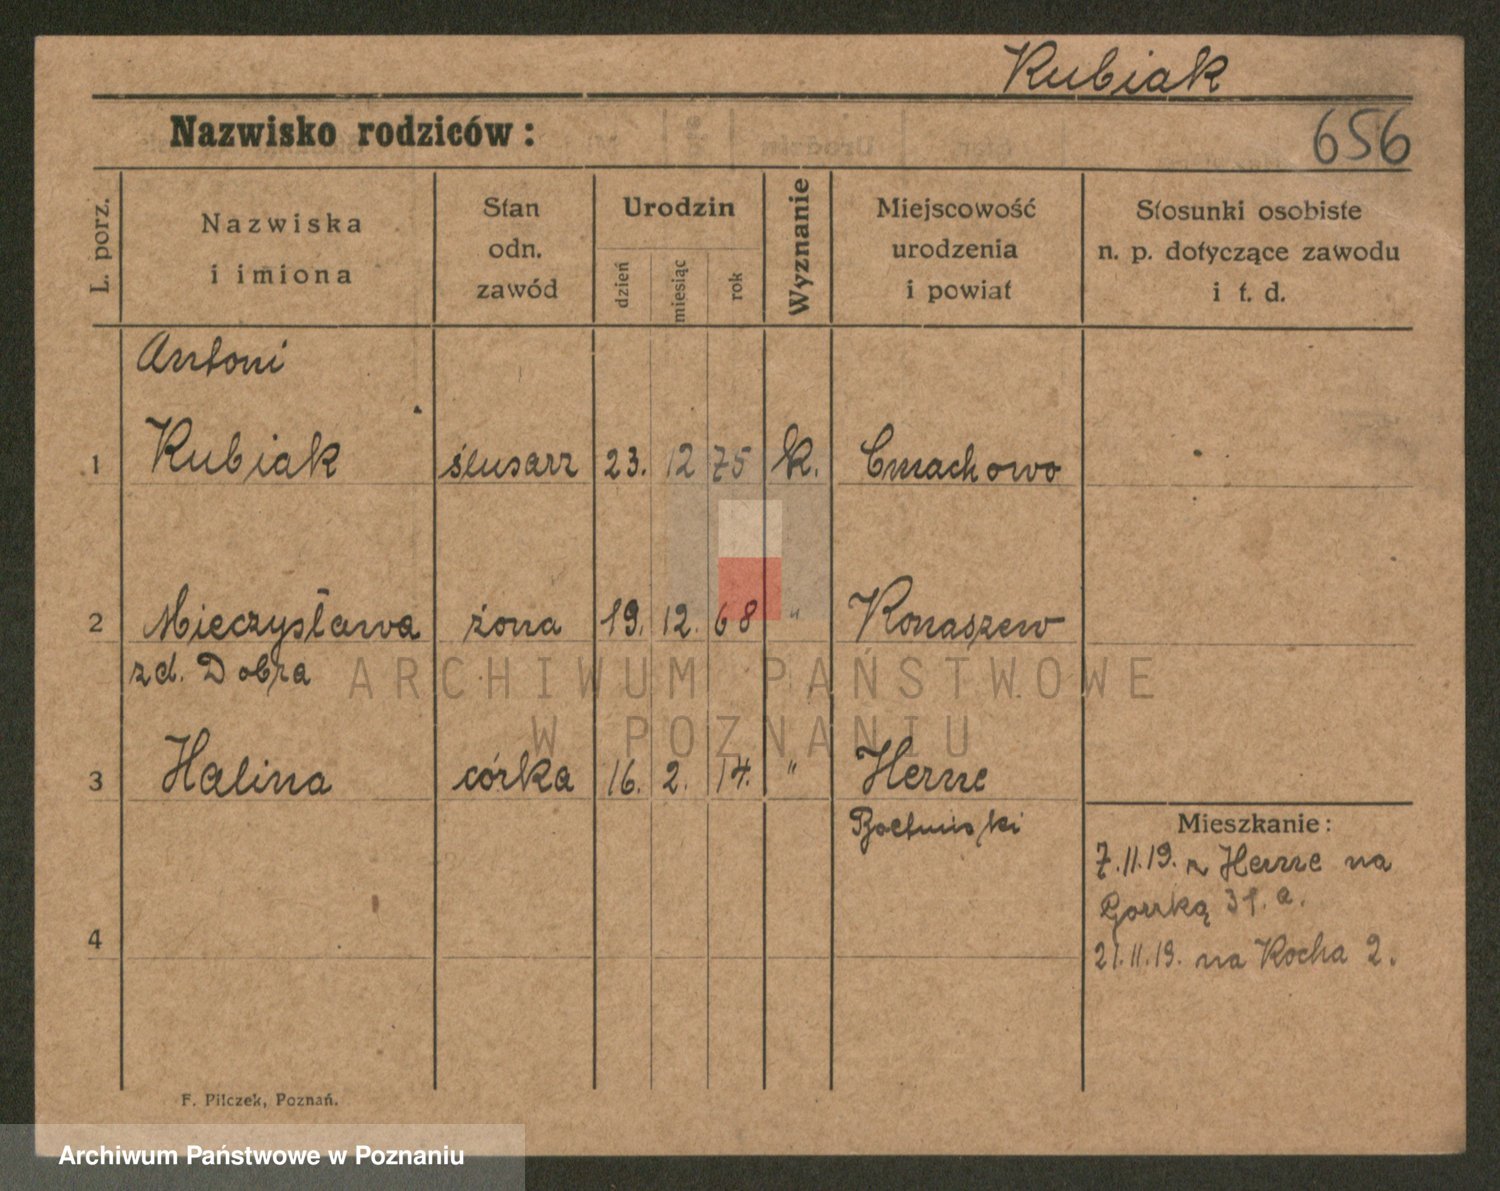 Kubiak
Nazwisko rodziców:
656
L. porz.
Nazwiska
i imiona
Stan
odn.
zawód
Urodzin
dzień
miesiąc
rok
Wyznanie
Miejscowość
urodzenia
i powiat
Stosunki osobiste
n. p. dotyczące zawodu
i t. d.
Antoni
1 Kubiak ślusarz 23. 12 75 k. Cmachowo
2 Mieczysława żona 19. 12. 68 " Konaszew
zd. Dobra
ARCHIWUM PAŃSTWOWE
W POZNANIU
3 Halina córka 16. 2. 14. " Herne
Mieszkanie:
7.11.19. z Herne na
31.a.
21.11.19. na Rocha 2.
4
F. Pilczek, Poznań.
Archiwum Państwowe w Poznaniu